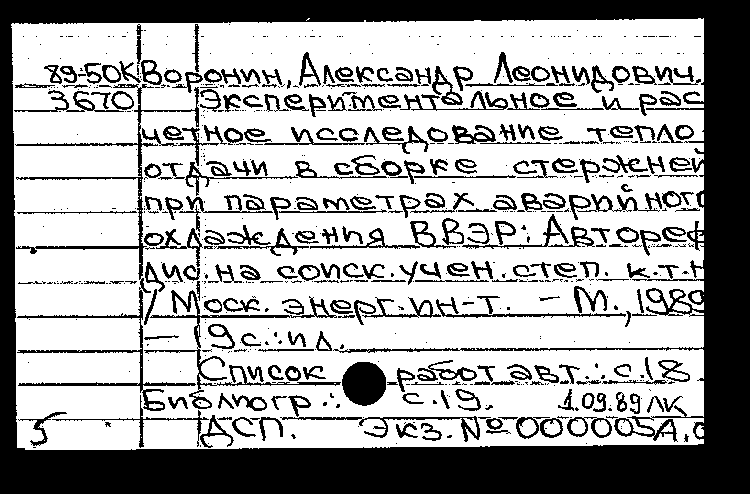 89-50К Воронин, Александр Леонидович.
3670 Экспериментальное и рас
четное исследование тепло-
отдачи в сборке стержней
при параметрах аварийного
охлаждения ВВЭР: Автореф
дис. на соиск. учен. степ. к.т.н
/ Моск. энерг. ин-т. – М., 1989
– 19 с.: ил.
Список работ авт.: с. 18
Библиогр.: с. 19. 1.09.89 ЛК
5 ДСП. Экз. № 000005А.